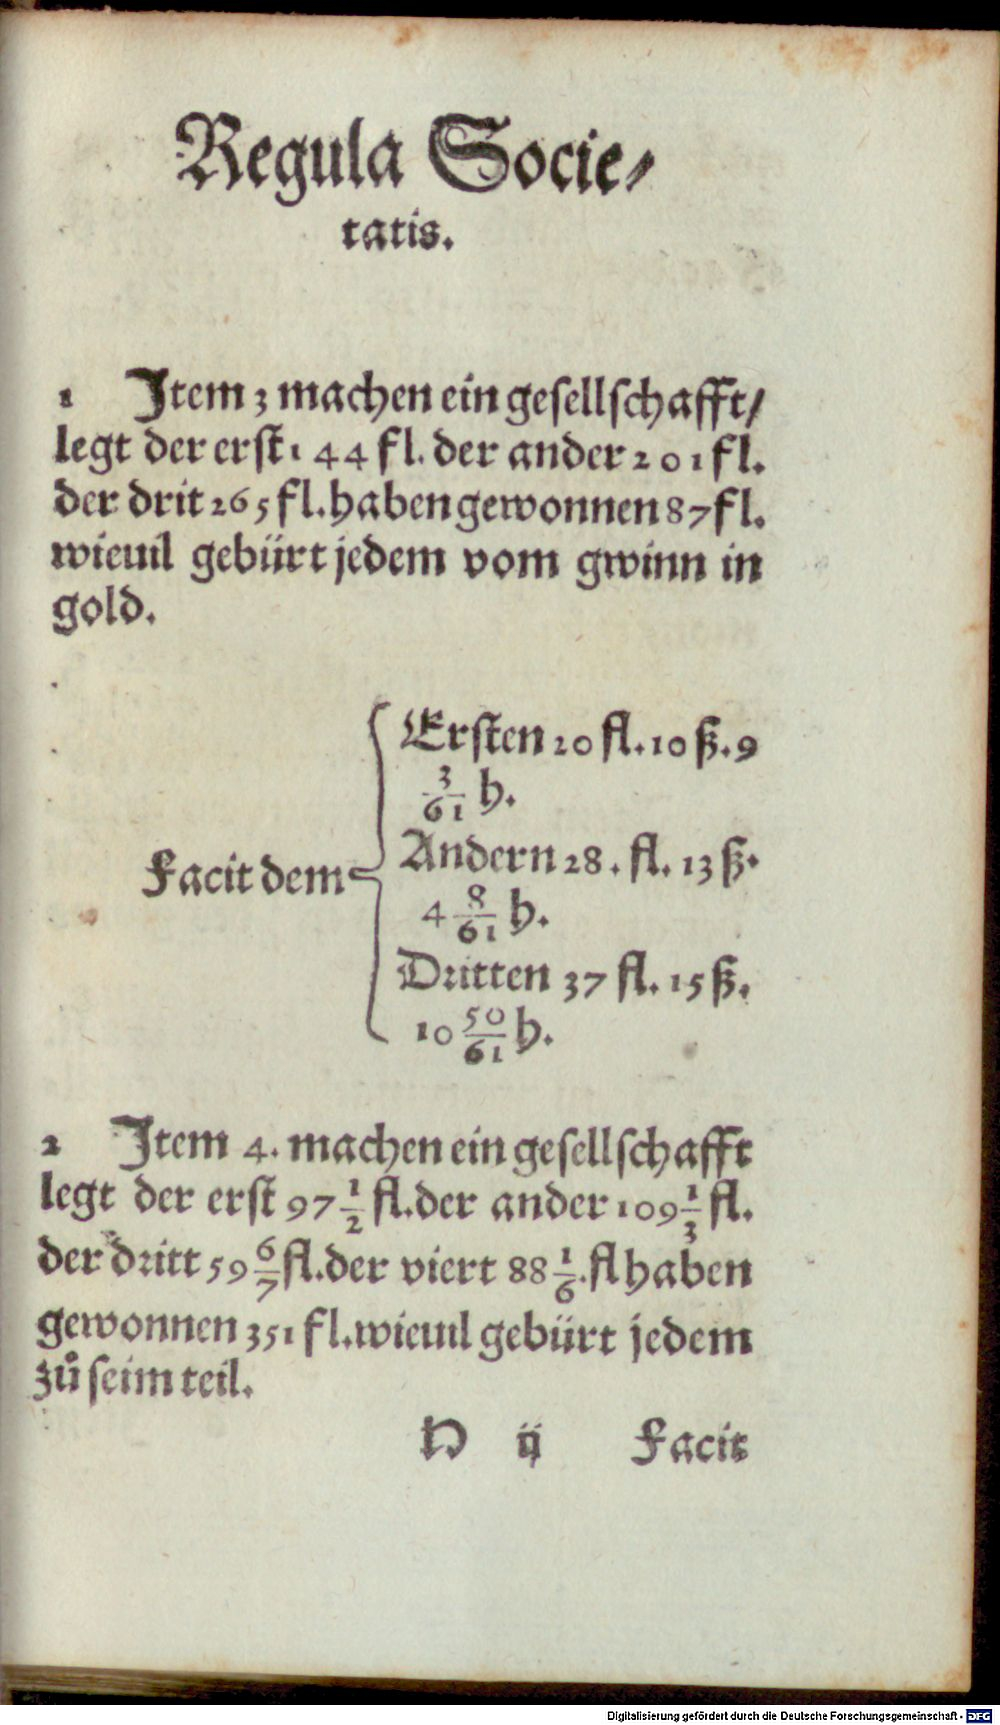 Regula Socie⸗
tatis.
1 Item 3 machen ein gesellschafft/
legt der erst 144 fl. der ander 201 fl.
der drit 265 fl. haben gewonnen 87 fl.
wieuil gebürt jedem vom gwinn in
gold.
Ersten 20 fl. 10 ß. 9
3/61 h.
Andern 28. fl. 13 ß.
Facit dem
4 8/61 h.
Dritten 37 fl. 15 ß.
10 50/61 h.
2 Item 4. machen ein gesellschafft
legt der erst 97 1/2 fl. der ander 109 1/3 fl.
der dritt 59 6/7 fl. der viert 88 1/6. fl haben
gewonnen 351 fl. wieuil gebürt jedem
zů seim teil.
N ij Facit
Digitalisierung gefördert durch die Deutsche Forschungsgemeinschaft - DFG